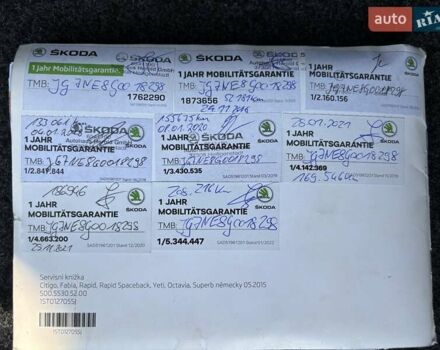 auto RIA
ŠKODA
1 Jahr Mobilitätsgarantie
TMB: JG7NE8G0018298
1762290
ŠKODA
1 JAHR
MOBILITÄTSGARANTIE
TMB: JG7NE8G0018298
1873656
52 181 km
24.11.2016
1 JAHR
MOBILITÄTSGARANTIE
TMB:
ŠKODA
1/2.160.156
133 061 km
04.01.2020
ŠKODA
1 JAHR
MOBILITÄTSGARANTIE
TMB: JG7NE8G0018298
1/2.841.844
155675 km
01.01.2020
1 JAHR
MOBILITÄTSGARANTIE
TMB: JG7NE8G0018298
ŠKODA
1/3.430.535
25.01.2021
1 JAHR
MOBILITÄTSGARANTIE
TMB: JG7NE8G0018298
ŠKODA
1/4.142.369
169.546 km
186946
1 JAHR
MOBILITÄTSGARANTIE
TMB: JG7NE8G0018298
ŠKODA
1/4.663.200
SAD51961201 Stand 12/2020
25.11.2021
208.216 km
1 JAHR
MOBILITÄTSGARANTIE
TMB: JG7NE8G0018298
ŠKODA
1/5.344.447
SAD51961201 Stand 01/2022
Servisní knížka
Citigo, Fabia, Rapid, Rapid Spaceback, Yeti, Octavia, Superb německy 05.2015
S00.5530.52.00
1ST0127055J
1ST0127055J